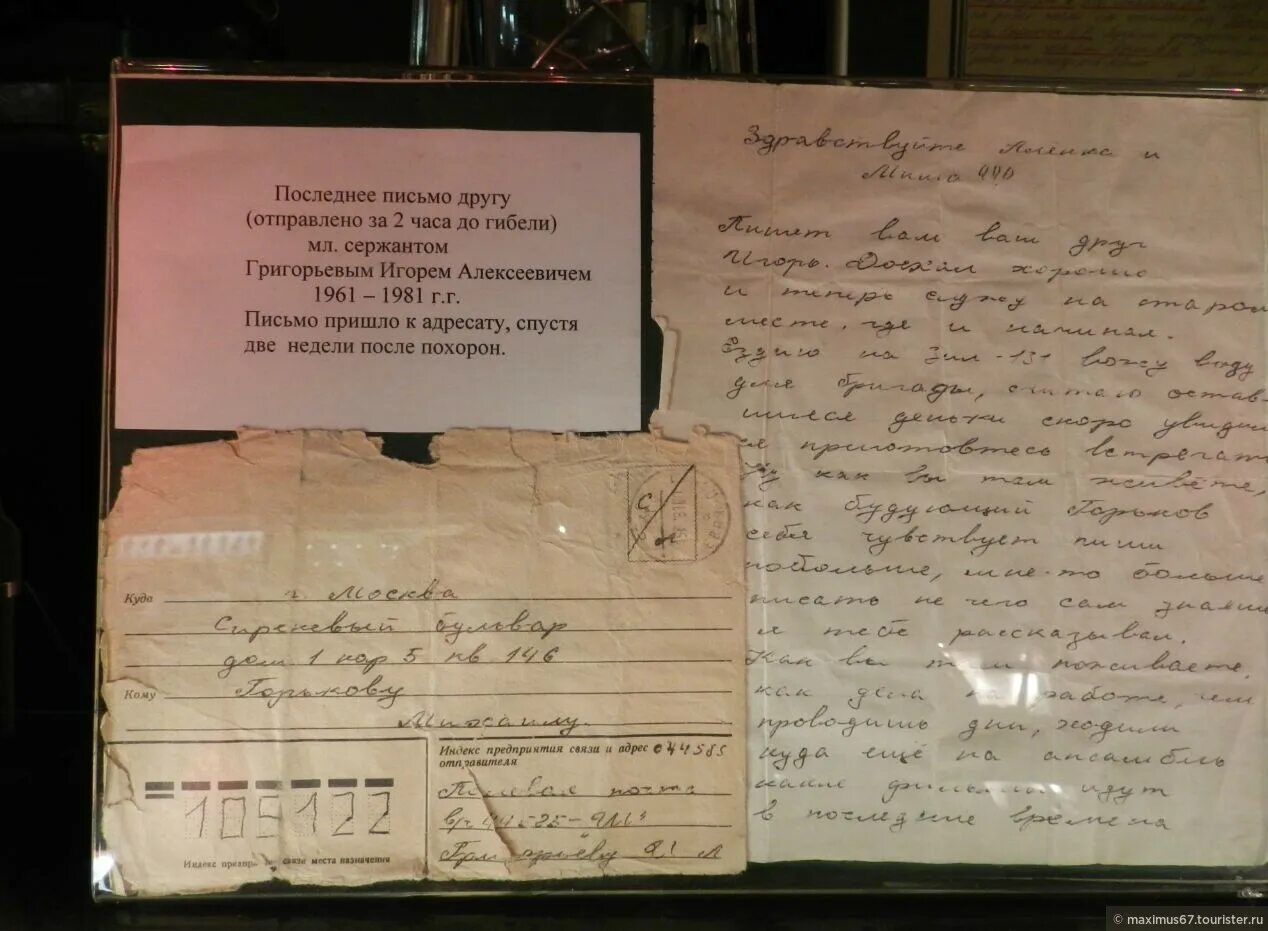 Последнее письмо другу
(отправлено за 2 часа до гибели)
мл. сержантом
Григорьевым Игорем Алексеевичем
1961 – 1981 г.г.
Письмо пришло к адресату, спустя
две недели после похорон.
Здравствуйте Аленка и
Миша
Пишет вам ваш друг
Игорь. Доехал хорошо
и теперь служу на старом
месте, где и начинал.
Езжу на Зил-131 вожу воду
для бригады, считаю остав-
шиеся деньки скоро увидим
ся приготовтесь встречать
Ну как вы там живёте,
как будующий Горьков
себя чувствует пиши
побольше, мне-то больше
писать не чего сам знаешь
я тебе рассказывал.
Как вы там поживаете,
как дела на работе, чем
проводишь дни, ходили
куда ещё на ансамбль
какие фильмы идут
в последние времена
Куда г. Москва
Сиреневый бульвар
дом 1 кор 5 кв 146
Кому Горькову
Михаилу.
Индекс предприятия связи и адрес 044585
отправителя
Полевая почта
в/ч 44585-
105122
Индекс предпр. связи места назначения
© maximus67.tourister.ru